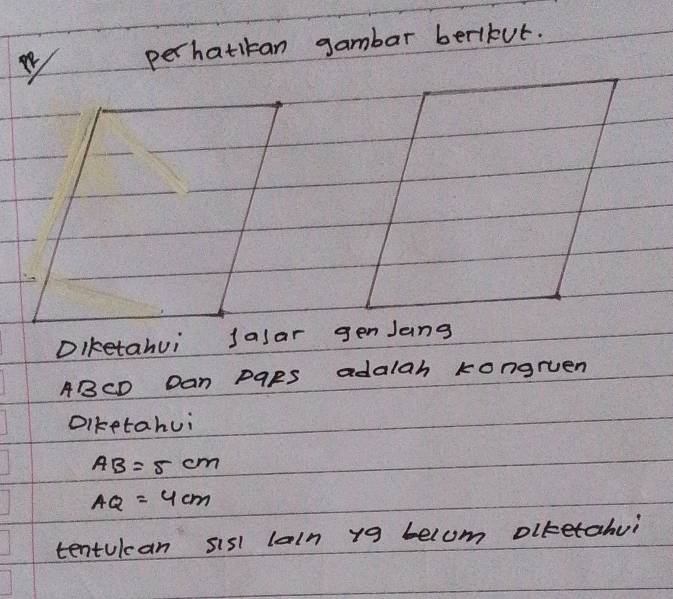 perhatikan gambar berikut.
Diketahui Jajar genJang
ABCD Dan PQRS adalah kongruen
Diketahui
AB = 5 cm
AQ = 4 cm
tentukan sisi lain yg belum Diketahui